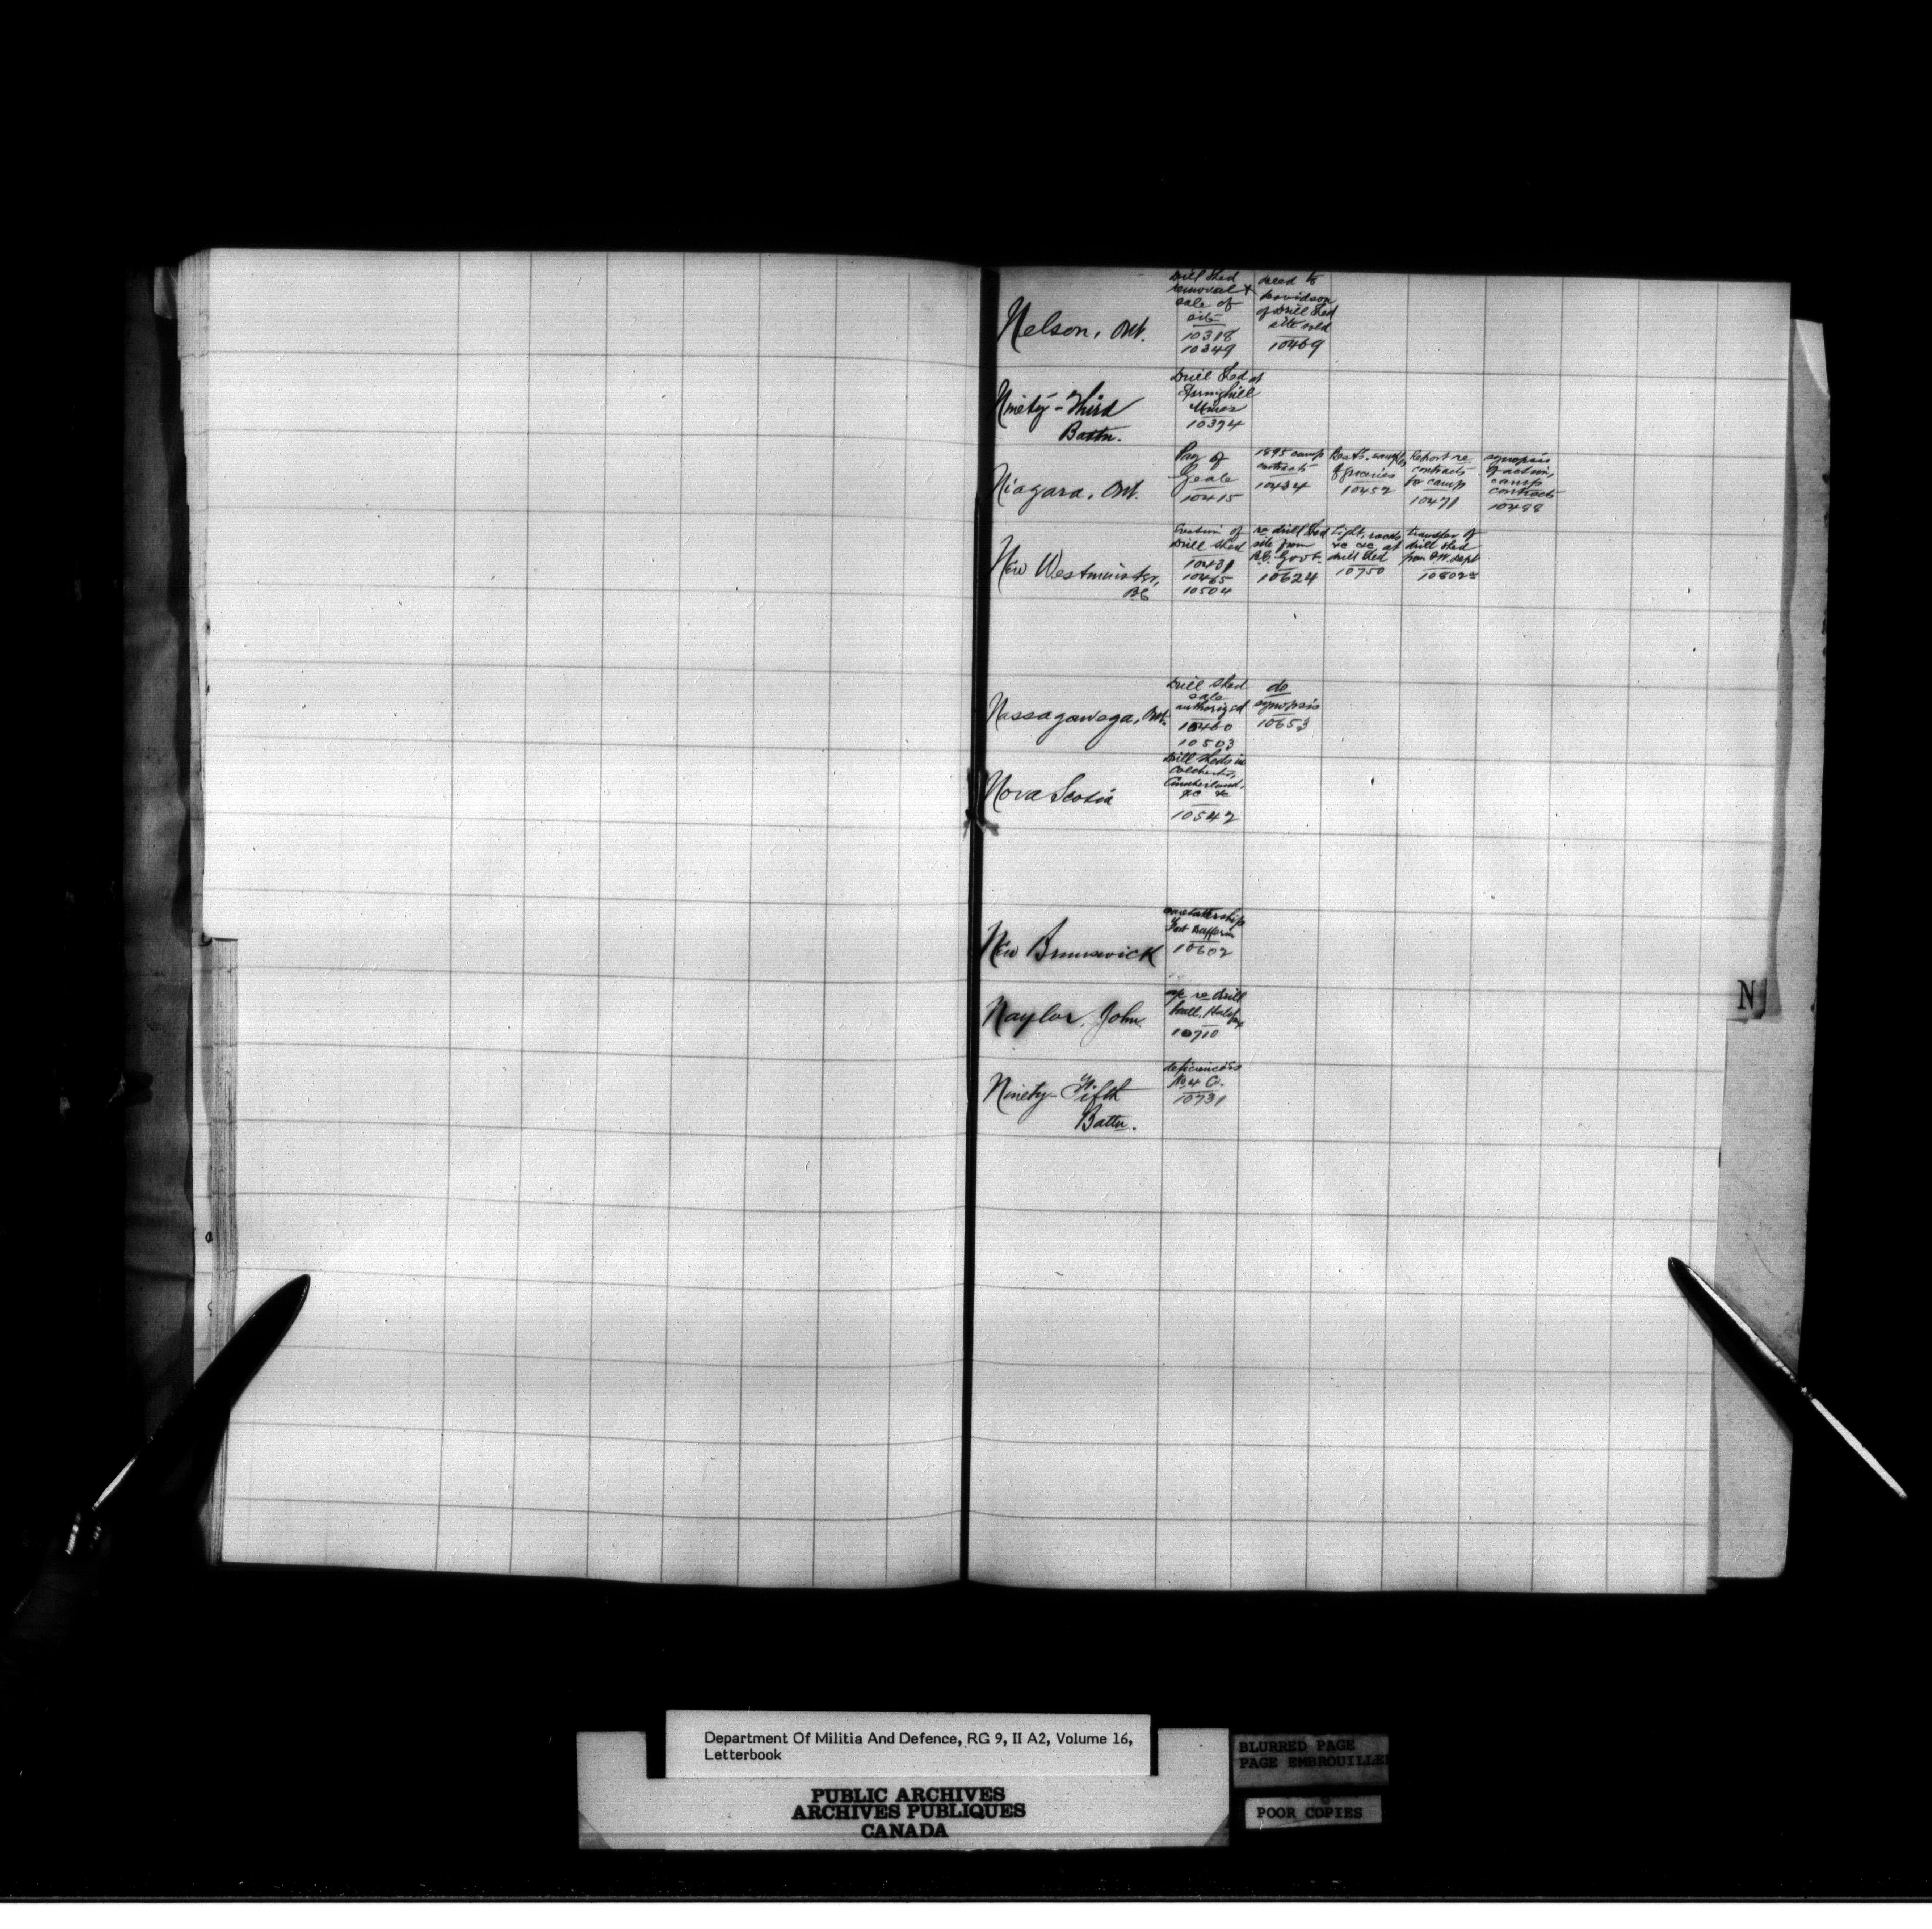 Nelson, Ont.
Drill Shed
removal &
sale of
site
10318
10349
deed to
Davidson
of Drill Shed
site sold
10469
Ninety-Third
Battn.
Drill Shed at
Springhill
Mines
10374
Niagara, Ont.
Pay of
Geale
10415
1895 camp
contracts
10434
samples
of groceries
10452
Report re
contracts
for camp
10471
synopsis
of action,
camp
contracts
10488
New Westminster,
BC
Erection of
Drill Shed
10431
10465
10504
re drill shed
site from
B.C. Govt.
10624
Light, racks
&c &c at
drill shed
10750
transfer of
drill shed
from P.W. Dept
10802½
Nassagaweya, Ont.
Drill Shed
sale
authorized
10460
10503
do
synopsis
10653
Nova Scotia
Drill Sheds in
Colchester,
Cumberland,
&c &c
10542
New Brunswick
caretakership
Fort Dufferin
10602
Naylor, John
a/c re drill
hall, Halifax
10710
Ninety-Fifth
Battn.
deficiencies
No 4 Co.
10731
N
Department Of Militia And Defence, RG 9, II A2, Volume 16,
Letterbook
PUBLIC ARCHIVES
ARCHIVES PUBLIQUES
CANADA
BLURRED PAGE
PAGE EMBROUILLEE
POOR COPIES